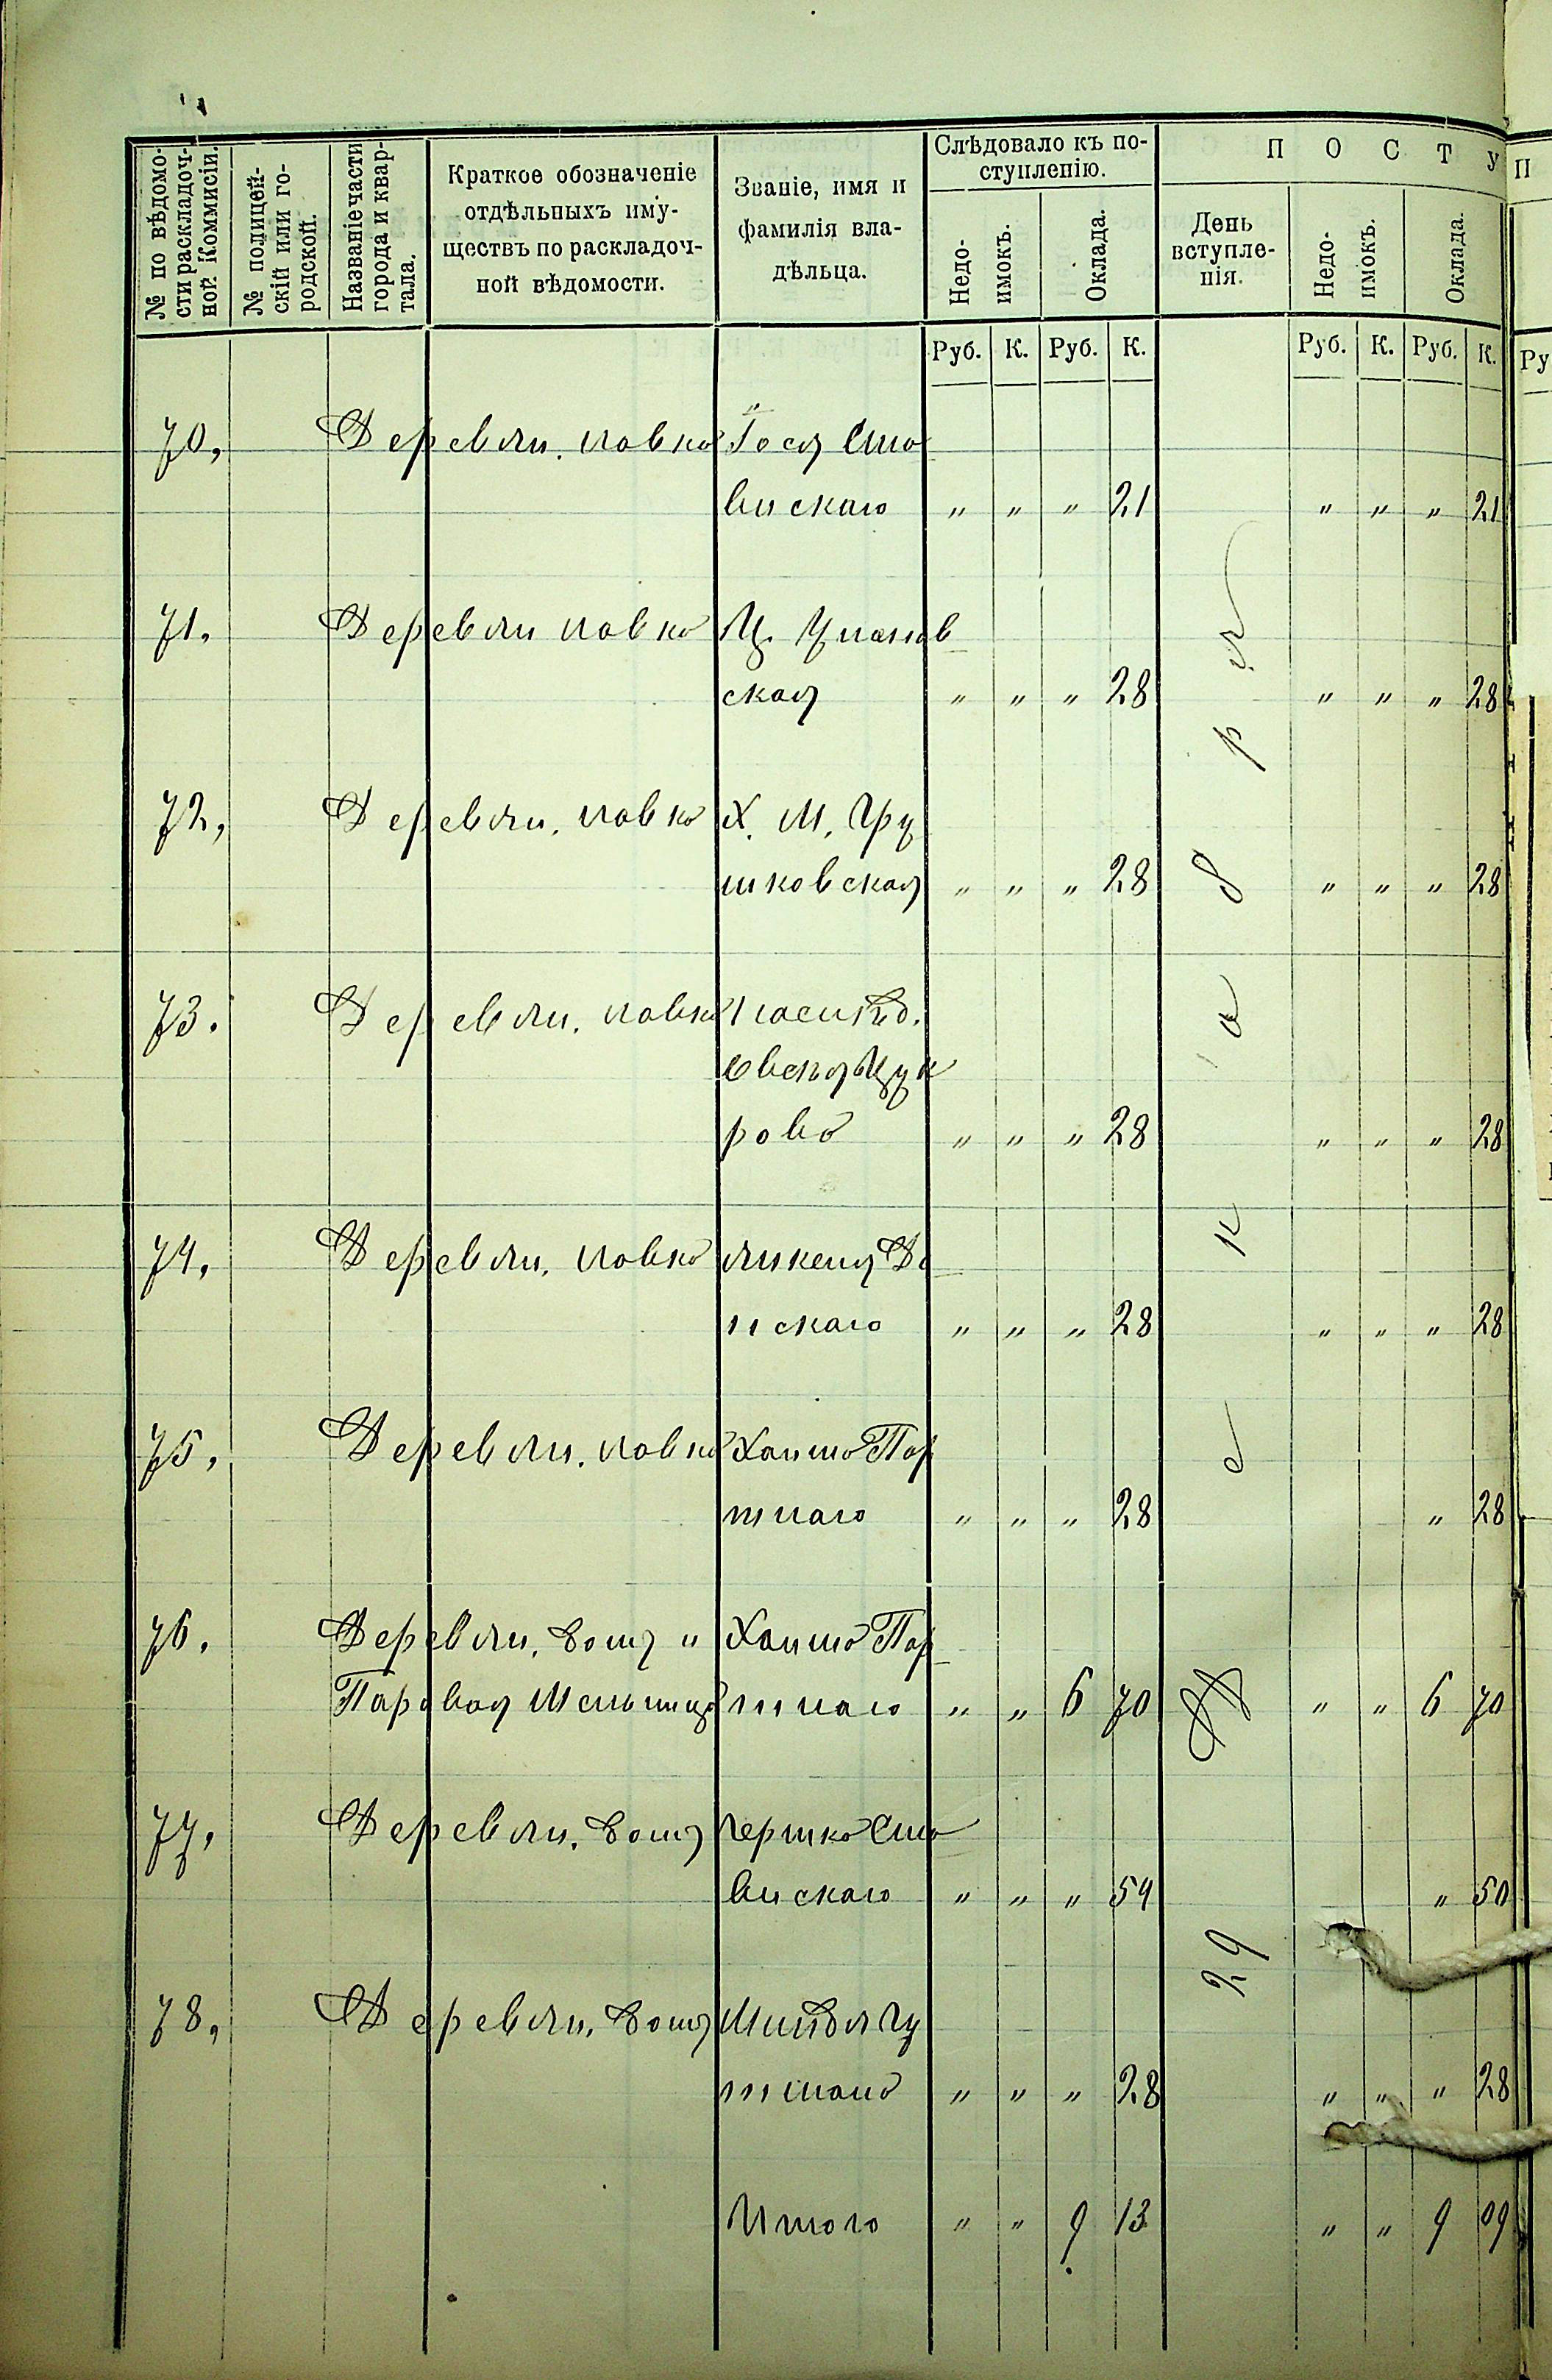 № по вѣдомо-
сти раскладоч-
ной Коммисіи.
№ полицей-
скій или го-
родской.
Названіе части
города и квар-
тала.
Краткое обозначеніе
отдѣльныхъ иму-
ществъ по раскладоч-
ной вѣдомости.
Званіе, имя и
фамилія вла-
дѣльца.
Слѣдовало къ по-
ступленію.
Недо-
имокъ.
Оклада.
П О С Т У
День
вступле-
нія.
Недо-
имокъ.
Оклада.
П
Руб. К. Руб. К. Руб. К. Руб. К. Ру
70, Деревян. лавка
вискаго " " " 21 " " " 21
71. Деревян лавка
ская " " " 28 " " " 28
72, Деревян. лавка Х. М. Гру
шковская " " " 28 " " " 28
73. Деревян. лавка наслѣд.
рова " " " 28 " " " 28
74, Деревян. лавка
нскаго " " " 28 " " " 28
75, Деревян. лавка Хаима Пор
тнаго " " " 28 " 28
76. Деревян. домъ и Хаима Пор
Паровая Мельница тнаго " " 6 70 " " 6 70
77, Деревян. домъ Гершка Сма
вискаго " " " 54 " 50
78, Деревян. домъ
тмана " " " 28 " " " 28
Итого " " 9 13 " " 9 09
29 Декабря